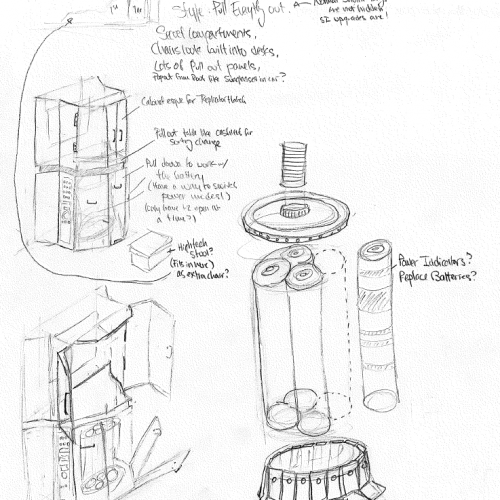 Style: Pull Empty out.
are not hidden
SI upgrades are!
Secret compartments,
Chairs look built into desks,
Lots of Pull out panels,
Popout from Roof like Sunglasses in car?
Cabinet esque for Replicator Hatch
Pullout table like cashiers for
sorting change
Pull down to work w/
the battery
(Have a way to switch
power modes!)
(only have 1-2 open at
a time?)
Hightech
Stool?
(Fits in here)
as extra chair?
Power Indicators?
Replace Batteries?